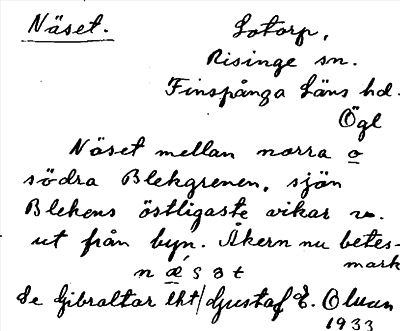 Näset.
Lotorp,
Risinge sn.
Finspånga läns hd.
Ögl
Näset mellan norra o
södra Blekgrenen, sjön
Blekens östligaste vikar
ut från byn. Åkern nu betes-
mark
næsat
Se Gibraltar lht/Gustaf E. Olsson
1933